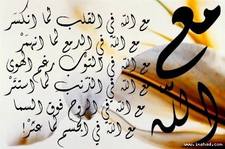 مع الله
مع الله في القلب لما انكسر
مع الله في الدمع لما انهمر
مع الله في التوب رغم الهوى
مع الله في الذنب لما استتر
مع الله في الروح فوق السما
مع الله في الجسم لما عثر!
www.inshad.com